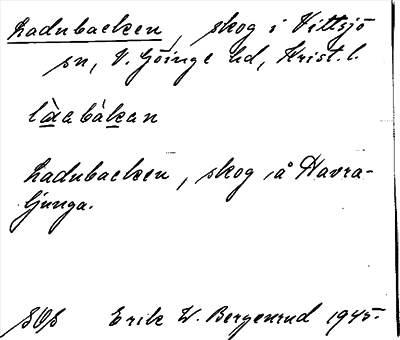 Ladubacken, skog i Vittsjö
sn, V. Göinge hd, Krist. l.
làdebákan
Ladubacken, skog å Havra-
ljunga.
SOS Erik W. Bergenrud 1945.